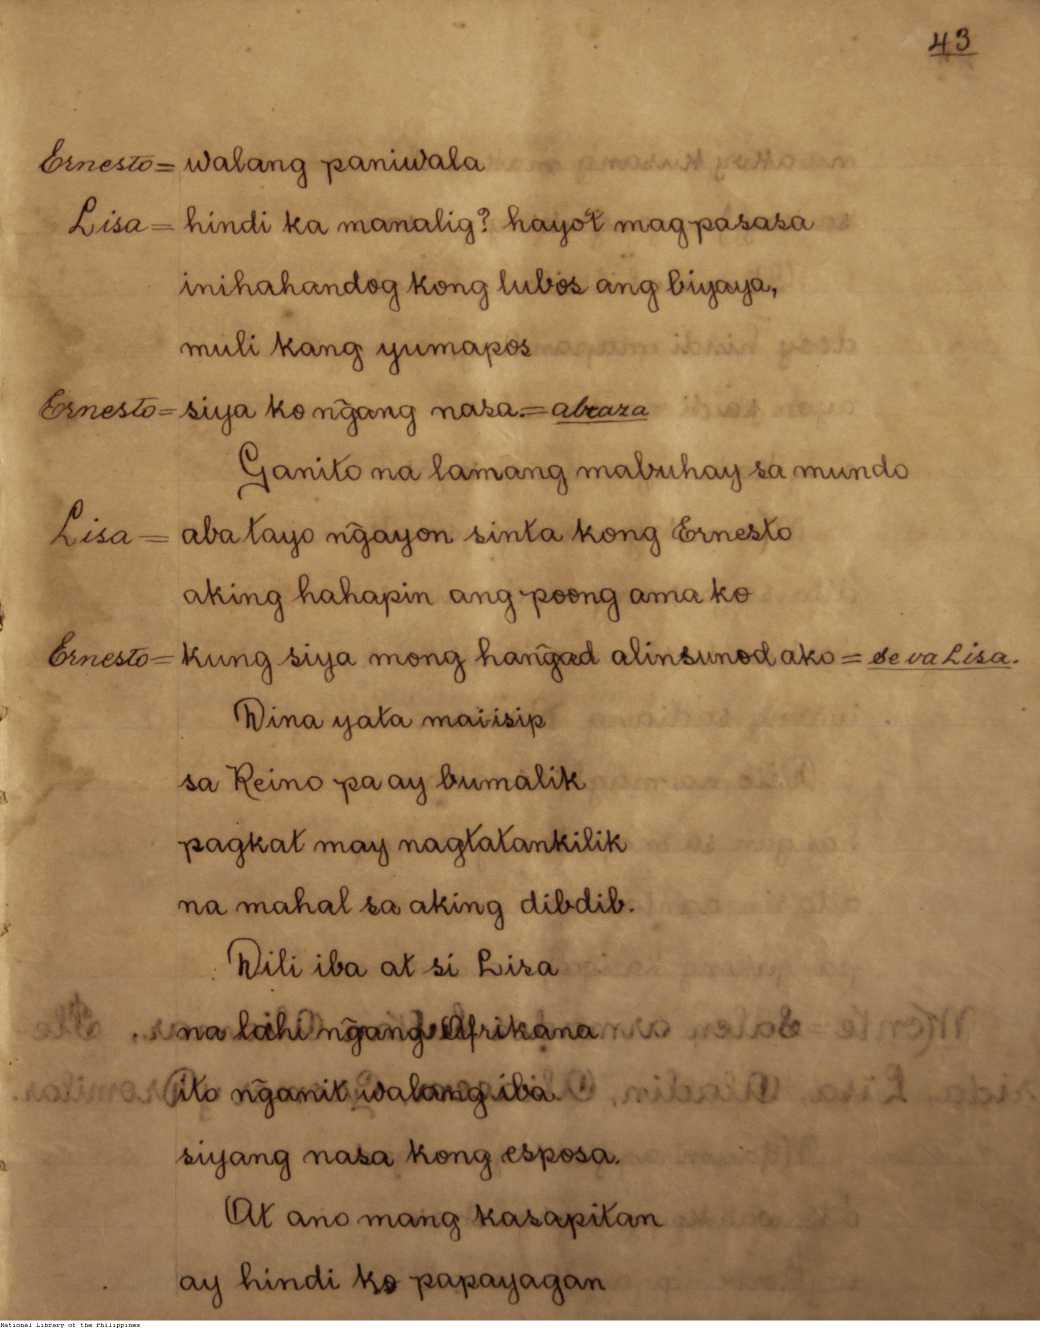 43
Ernesto = walang paniwala
Lisa = hindi ka manalig? hayo't magpasasa
inihahandog kong lubos ang biyaya,
muli kang yumapos
Ernesto = siya ko ng̃ang nasa. = abraza
Ganito na lamang mabuhay sa mundo
Lisa = aba tayo ng̃ayon sinta kong Ernesto
aking hahapin ang poong ama ko
Ernesto = kung siya mong hang̃ad alinsunod ako = se va Lisa.
Dina yata maiisip
sa Reino pa ay bumalik
pagkat may nagtatankilik
na mahal sa aking dibdib.
Dili iba at si Lisa
na lahi ng̃ang Afrikana
ito ng̃anit walang iba
siyang nasa kong esposa.
At ano mang kasapitan
ay hindi ko papayagan
National Library of the Philippines